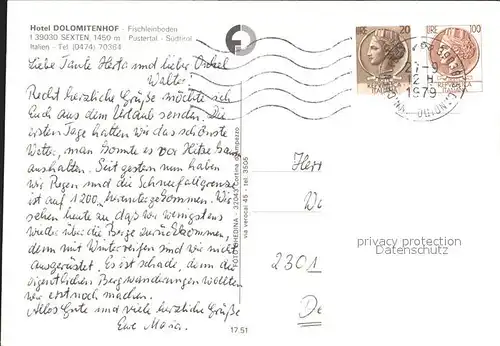 Hotel DOLOMITENHOF - Fischleinboden
I 39030 SEXTEN, 1450 m - Pustertal - Südtirol
Italien - Tel. (0474) 70364
Liebe Tante Herta und lieber Onkel
Walter,
Recht herzliche Grüße möchte ich
Euch aus dem Urlaub senden. Die
ersten Tage hatten wir das schönste
Wetter, man konnte es vor Hitze kaum
aushalten. Seit gestern nun haben
wir Regen und die Schneefallgrenze
ist auf 1200 heruntergekommen. Wir
sehen heute zu, daß wir wenigstens
wieder über die Berge zurückkommen,
denn mit Winterreifen sind wir nicht
ausgerüstet. Es ist schade, denn die
eigentlichen Bergwanderungen wollten
wir erst noch machen.
Alles Gute und viele herzliche Grüße
Eure Maria.
17.51
FOTO GHEDINA - 32043 Cortina d'Ampezzo
via verocai 45 - tel. 3506
LIRE 20
100
1979
Herr
W
2301
De
privacy protection
Datenschutz